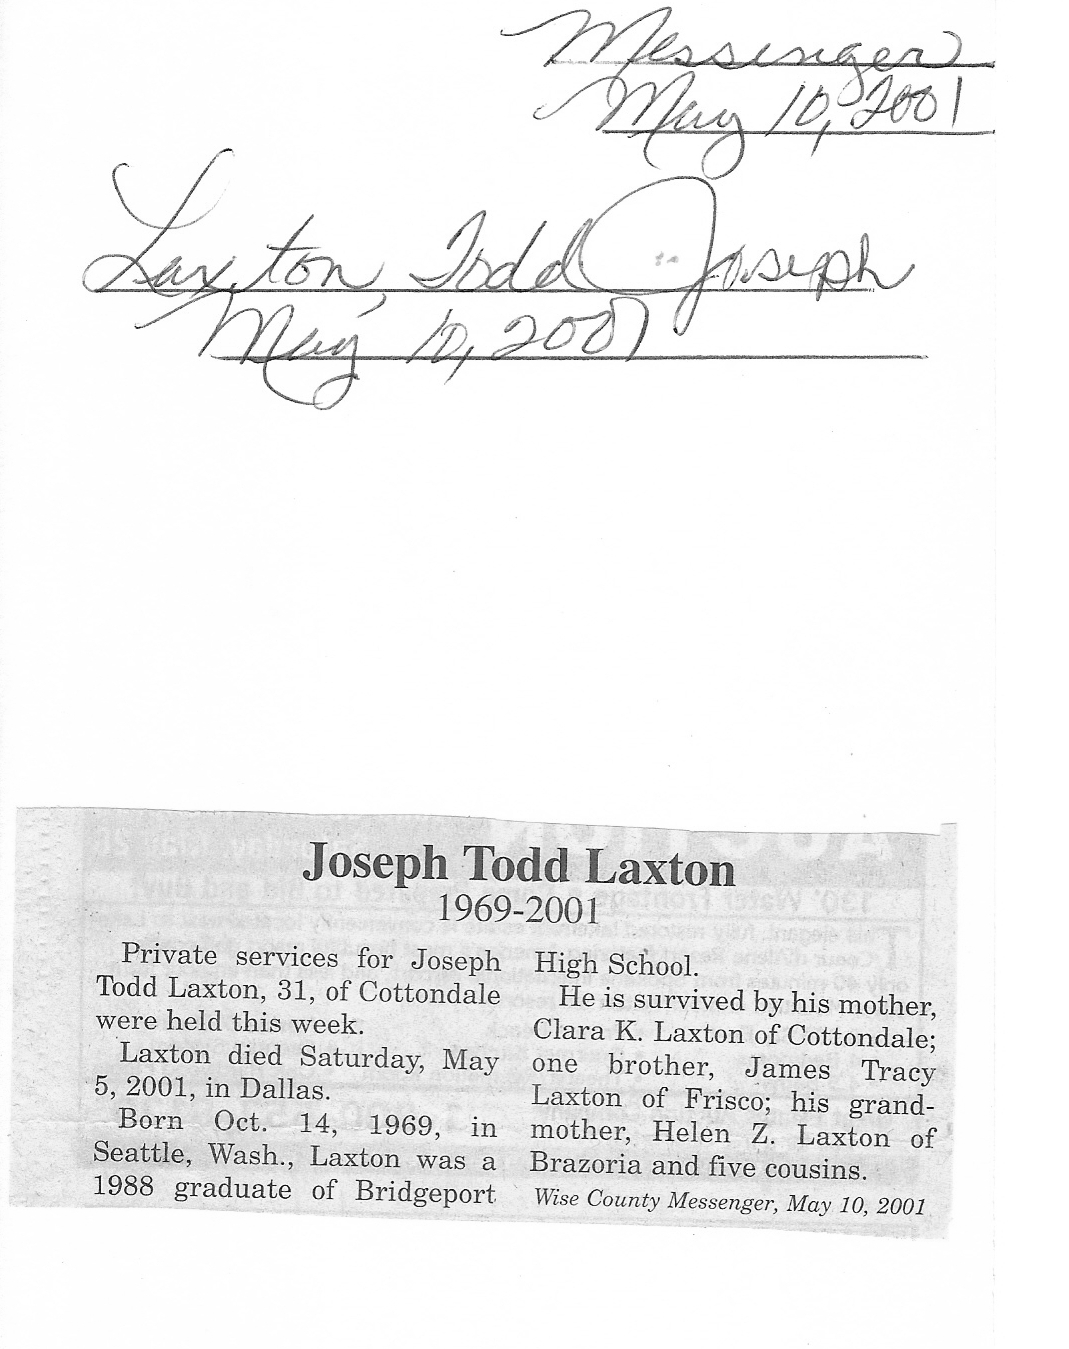 Messenger
May 10, 2001
Laxton, Todd Joseph
May 10, 2001
Joseph Todd Laxton
1969-2001
Private services for Joseph
Todd Laxton, 31, of Cottondale
were held this week.
Laxton died Saturday, May
5, 2001, in Dallas.
Born Oct. 14, 1969, in
Seattle, Wash., Laxton was a
1988 graduate of Bridgeport
High School.
He is survived by his mother,
Clara K. Laxton of Cottondale;
one brother, James Tracy
Laxton of Frisco; his grand-
mother, Helen Z. Laxton of
Brazoria and five cousins.
Wise County Messenger, May 10, 2001